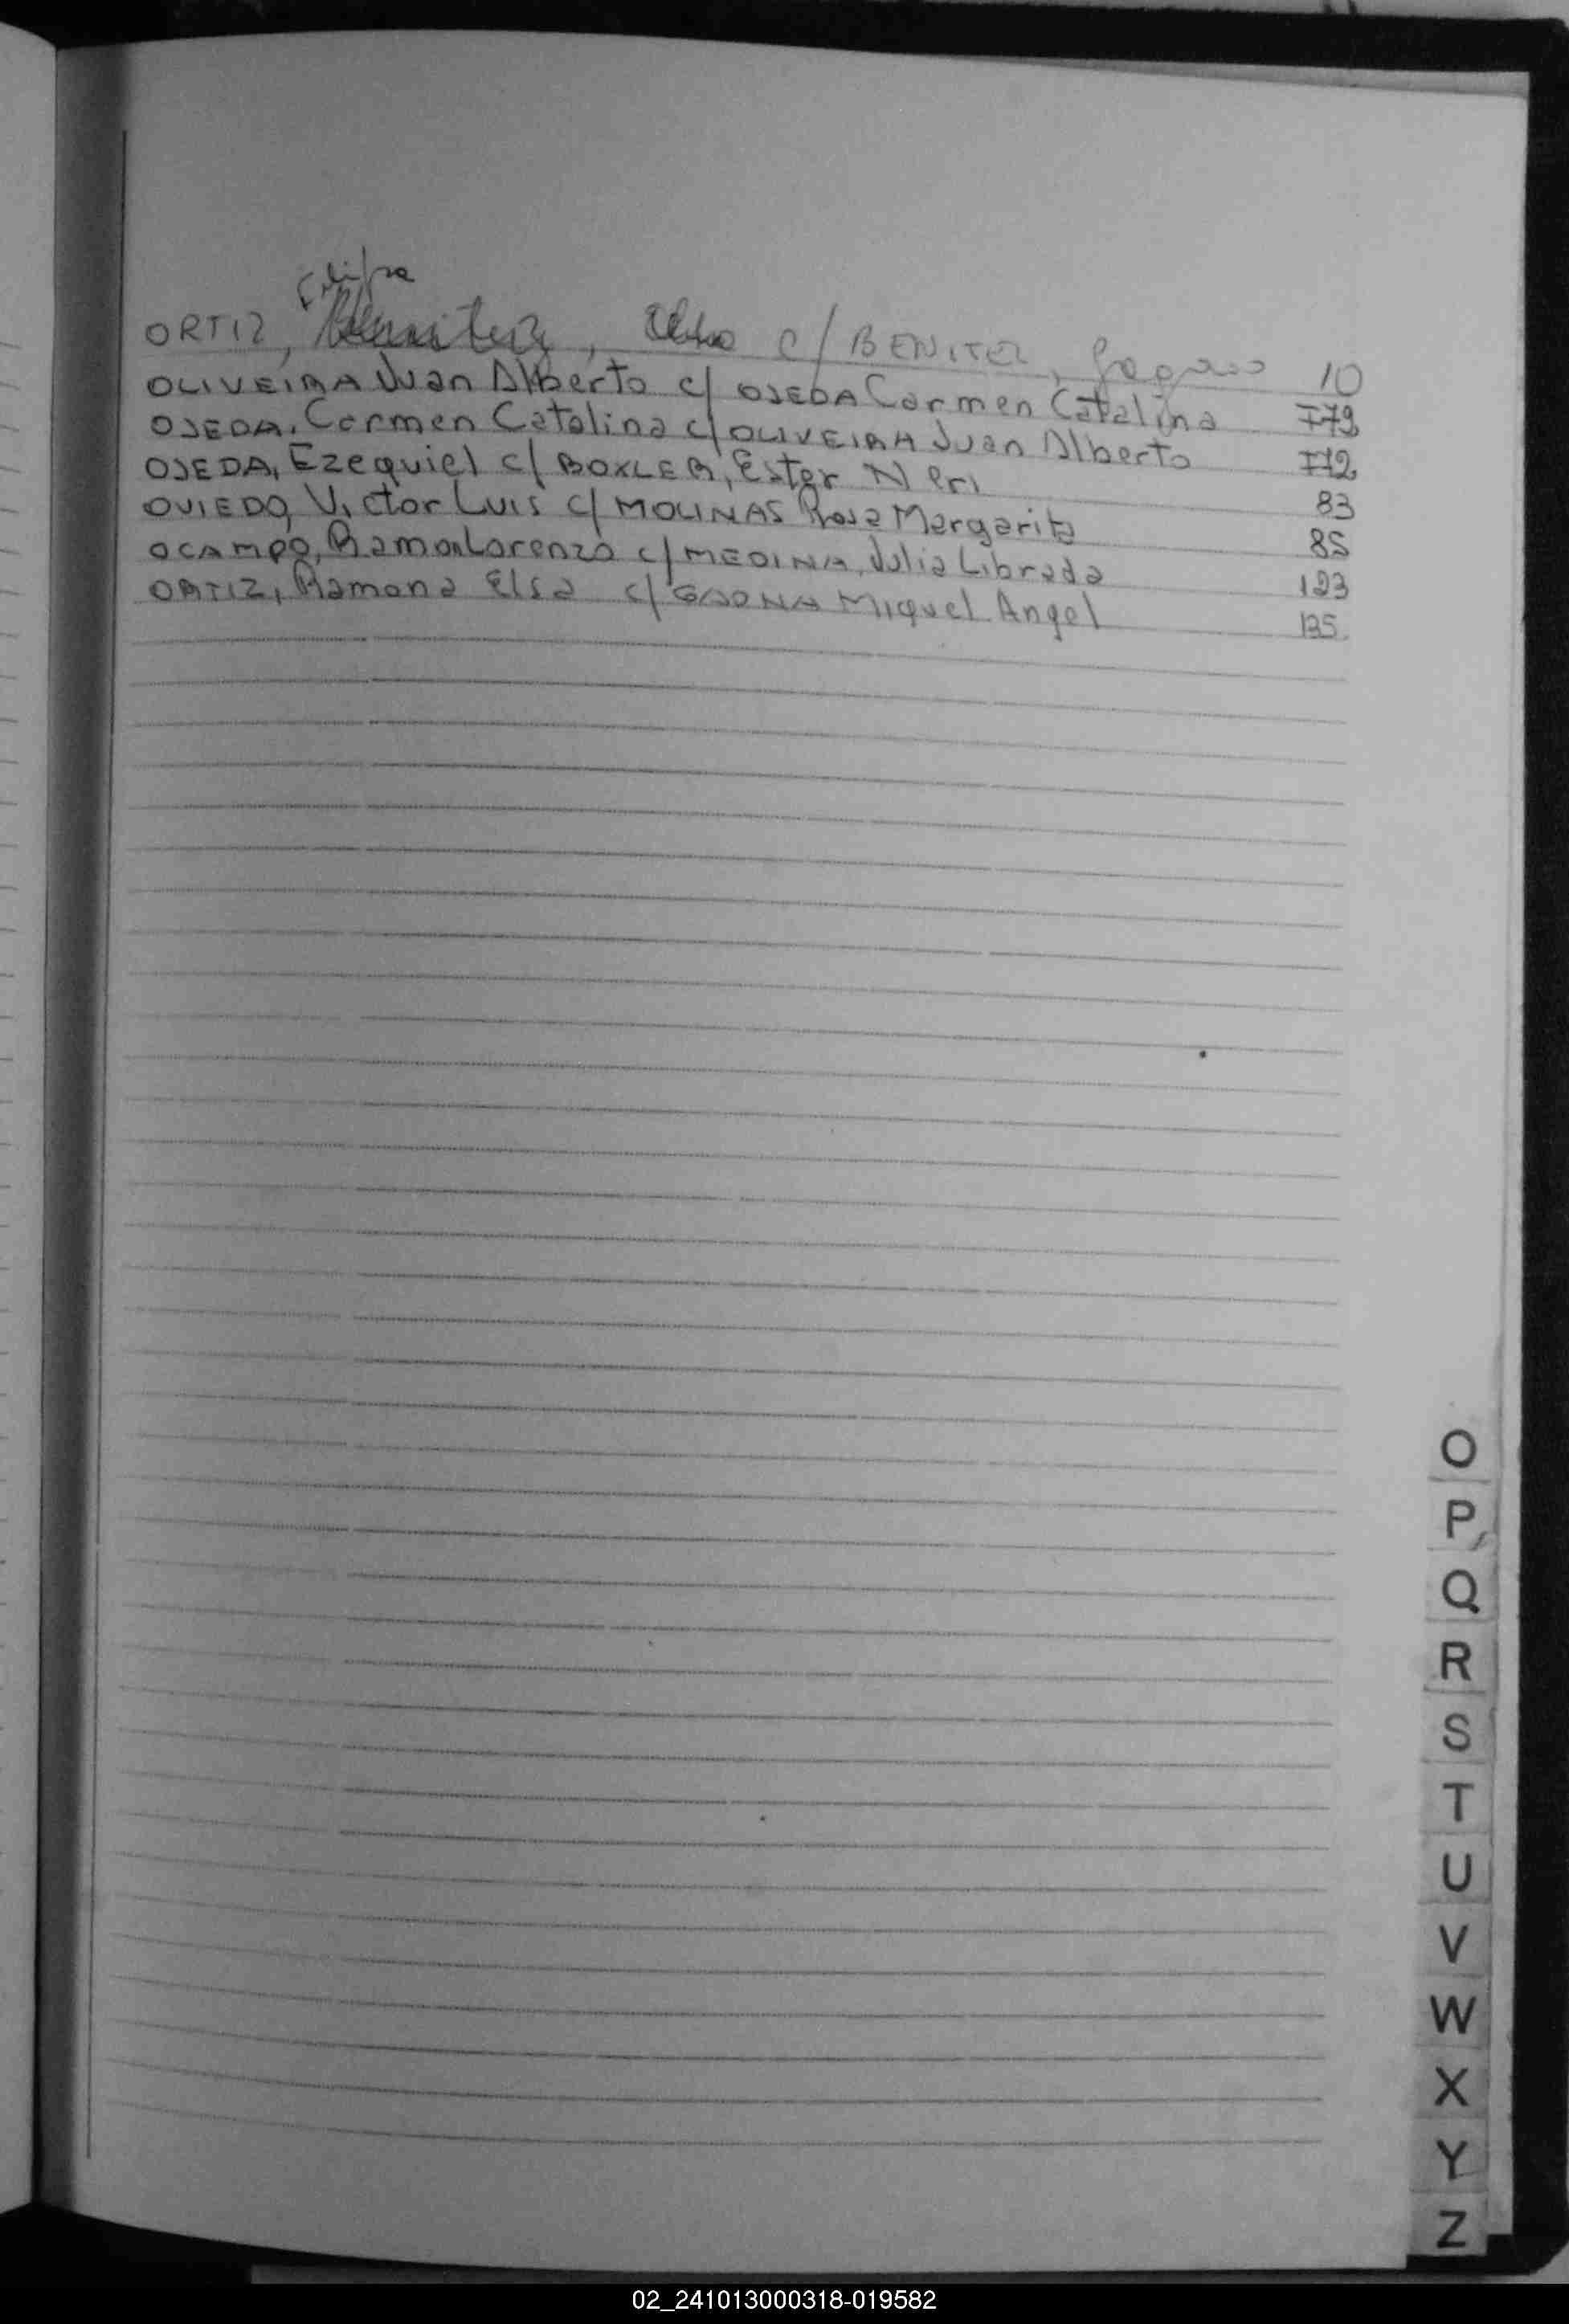 ORTIZ, c/ BENITEZ, 10
OLIVEIRA Juan Alberto c/ OJEDA Carmen Catalina 72
OJEDA, Carmen Catalina c/ OLIVEIRA Juan Alberto 72
OJEDA, Ezequiel c/ BOXLER, Ester Neri 83
OVIEDO, Victor Luis c/ MOLINAS Rosa Margarita 85
OCAMPO, Ramon Lorenzo c/ MEDINA, Julia Librada 123
ORTIZ, Ramona Elsa c/ GAONA Miguel Angel 135
O
P
Q
R
S
T
U
V
W
X
Y
Z
02_241013000318-019582